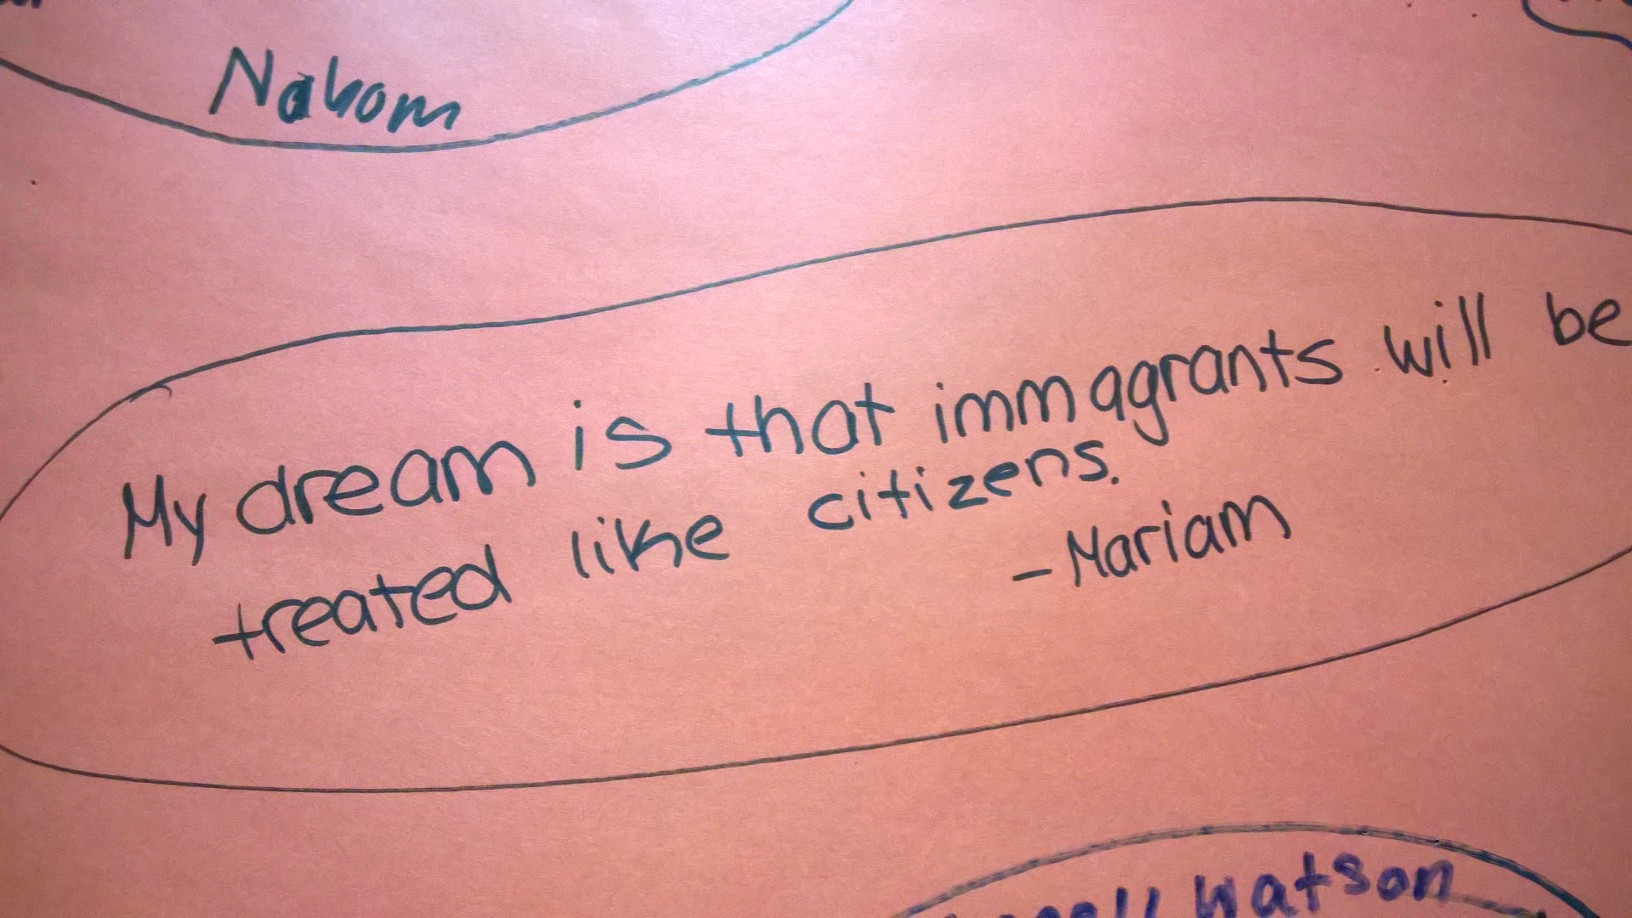 Nahom
My dream is that immagrants will be
treated like citizens.
- Mariam
Watson